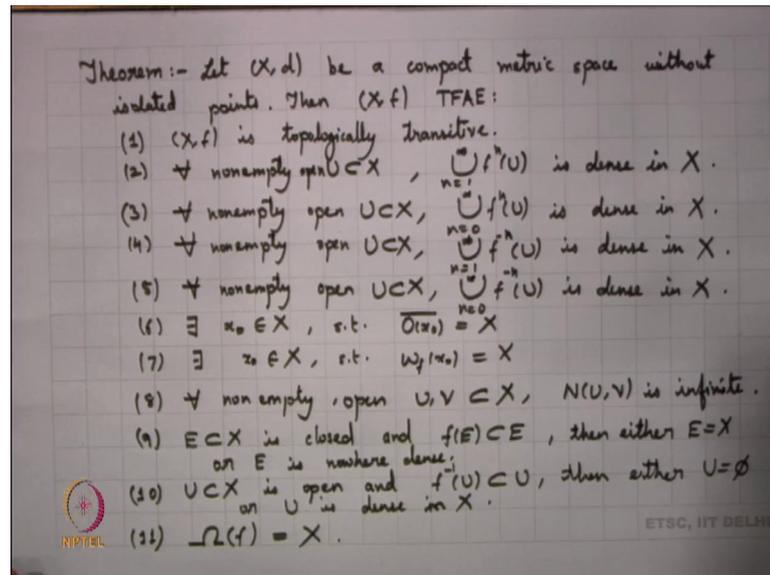 Theorem:- Let (X,d) be a compact metric space without
isolated points. Then (X,f) TFAE:
(1) (X,f) is topologically transitive.
(2) ∀ nonempty open U⊂X , ⋃_{n=1}^{∞} f^n(U) is dense in X.
(3) ∀ nonempty open U⊂X, ⋃_{n=0}^{∞} f^n(U) is dense in X.
(4) ∀ nonempty open U⊂X, ⋃_{n=1}^{∞} f^{-n}(U) is dense in X.
(5) ∀ nonempty open U⊂X, ⋃_{n=0}^{∞} f^{-n}(U) is dense in X.
(6) ∃ x₀ ∈ X , s.t. \overline{O(x₀)} = X
(7) ∃ x₀ ∈ X, s.t. ω_f(x₀) = X
(8) ∀ non empty, open U,V ⊂ X, N(U,V) is infinite.
(9) E⊂X is closed and f(E)⊂E , then either E=X
or E is nowhere dense.
(10) U⊂X is open and f^{-1}(U)⊂U, then either U=∅
or U is dense in X.
(11) Ω(f) = X.
NPTEL
ETSC, IIT DELHI